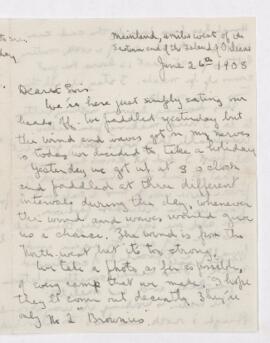 Mainland, 2 miles west of the
Eastern end of the Island of Orleans
June 26th 1903
Dearest Sis:
We is here just simply eating our
heads off. We paddled yesterday but
the wind and waves got on my nerves
so today we decided to take a holiday
Yesterday we got up at 3 o'clock
and paddled at three different
intervals during the day, whenever
the wind and waves would give
us a chance. The wind is from the
North-west but it's too strong.
We take a photo as far as possible,
of every camp that we made. I hope
they'll come out decently. They're
only No 2 "Brownies".